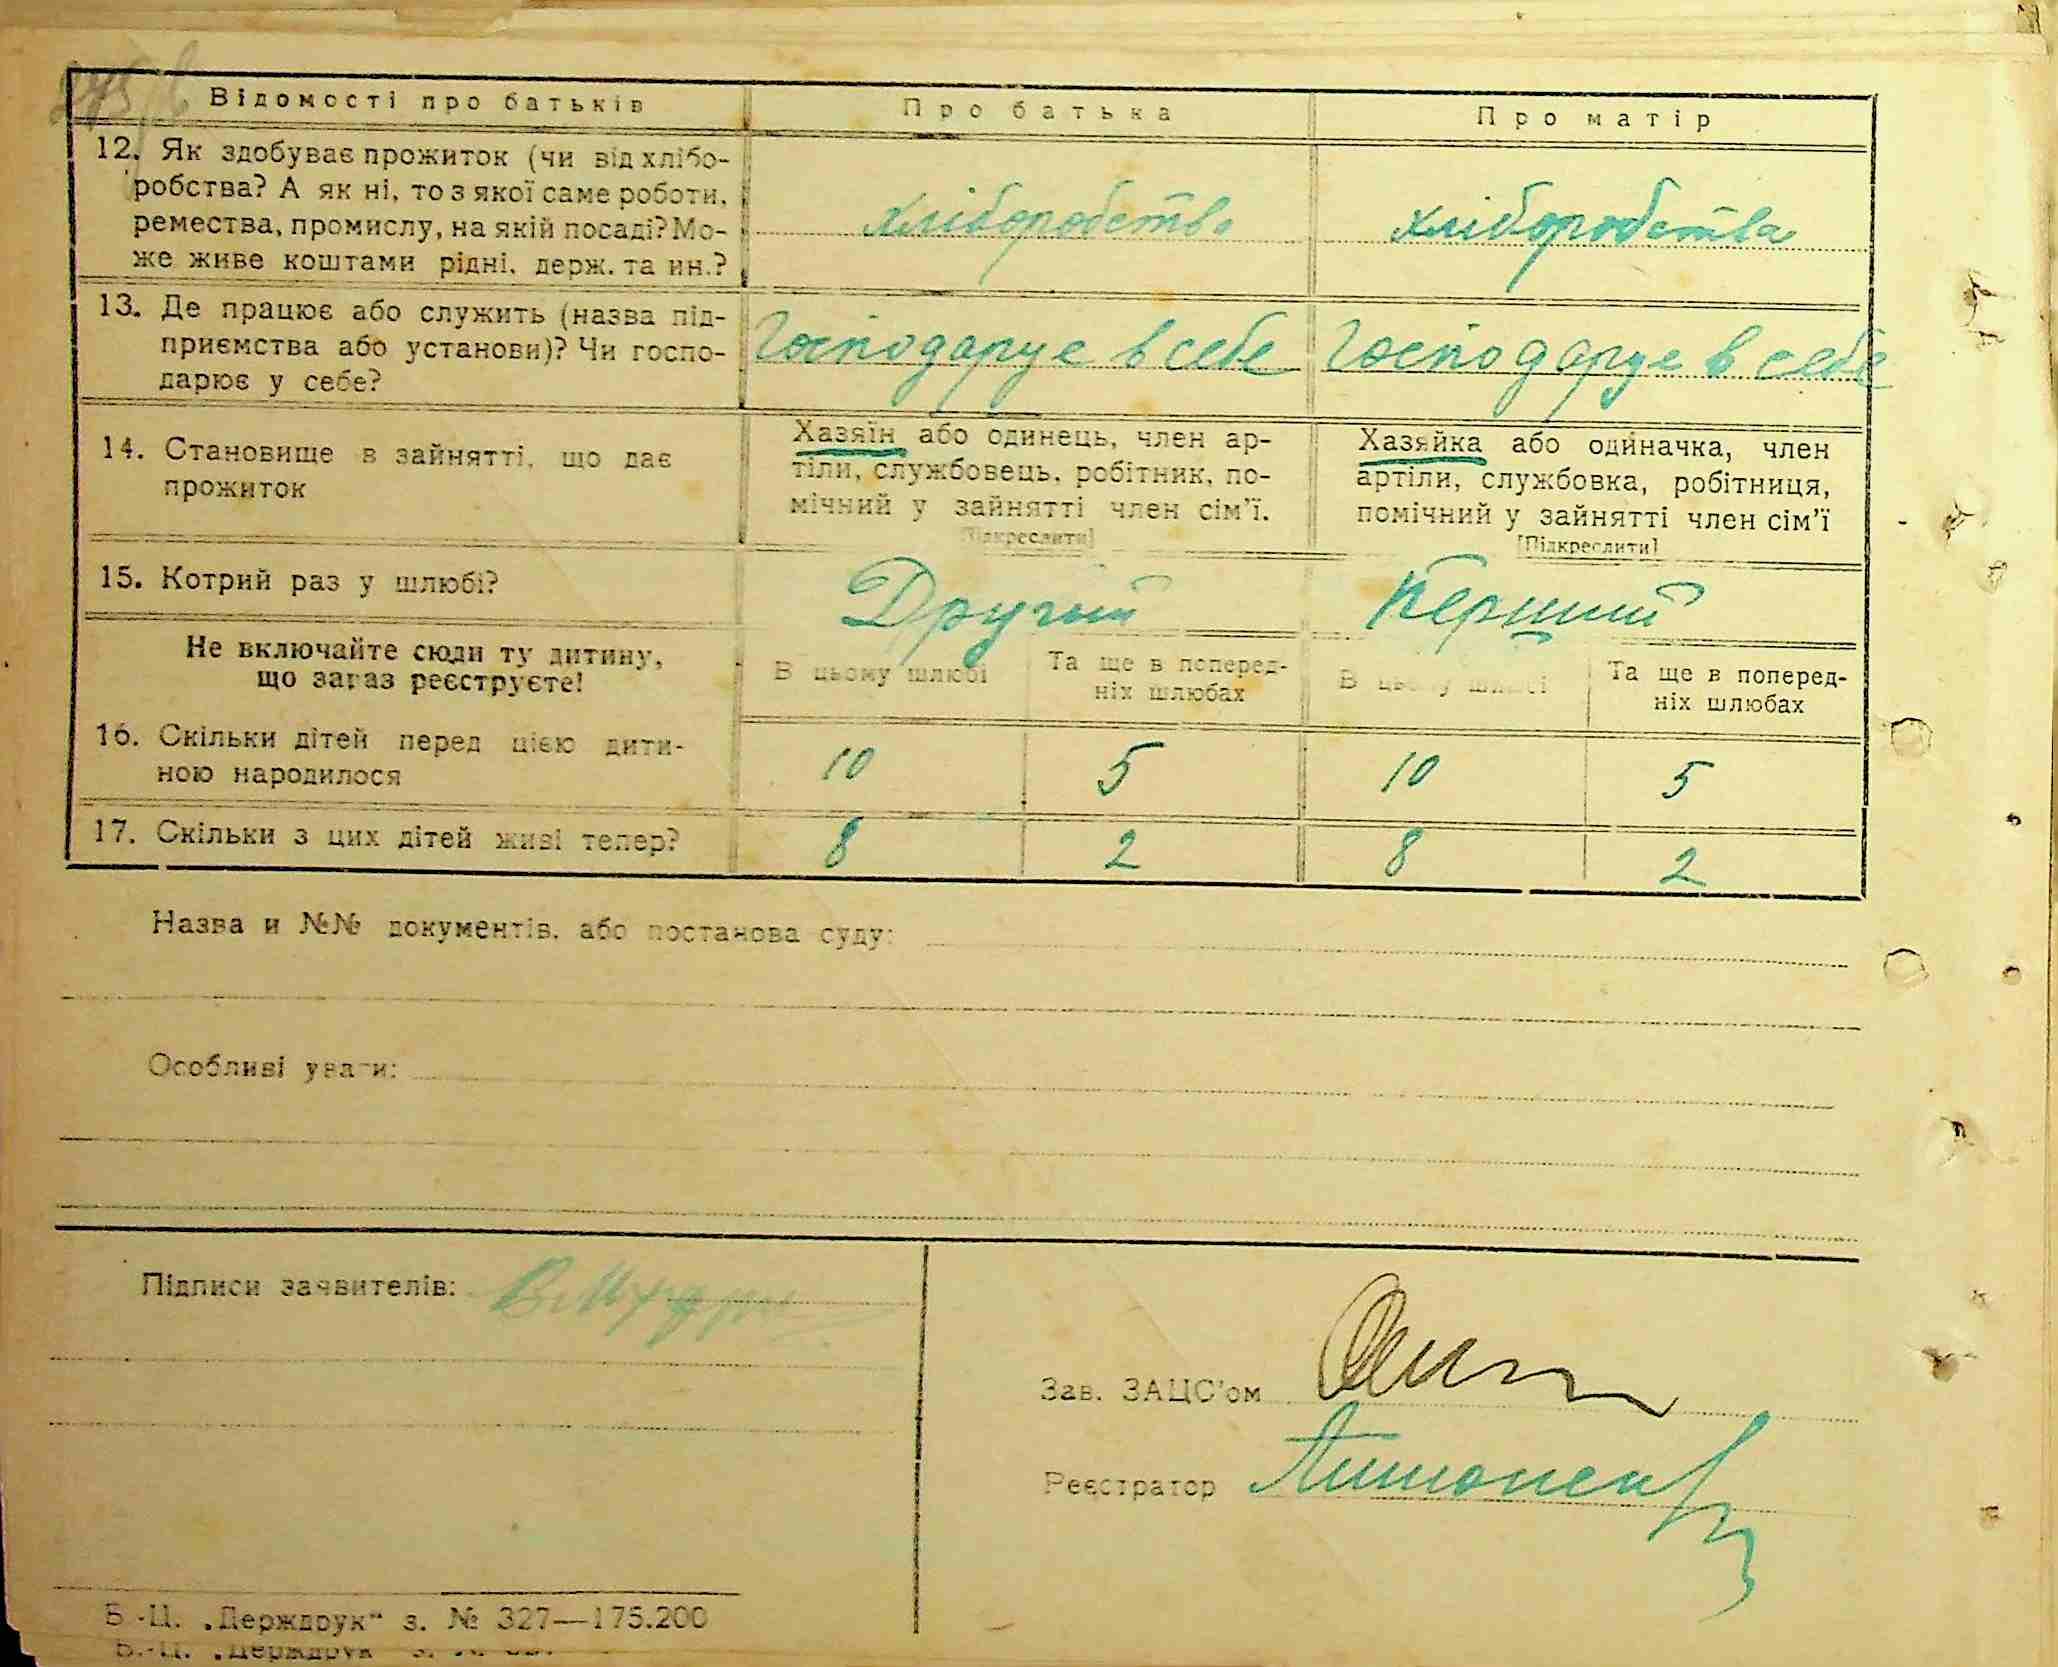 Відомості про батьків
Про батька
Про матір
12. Як здобуває прожиток (чи від хлібо-
робства? А як ні, то з якої саме роботи,
ремества, промислу, на якій посаді? Мо-
же живе коштами рідні, держ. та ин.?
хліборобства
хліборобства
13. Де працює або служить (назва під-
приємства або установи)? Чи госпо-
дарює у себе?
Господарує в себе
Господарує в себе
14. Становище в зайнятті, що дає
прожиток
Хазяїн або одинець, член ар-
тіли, службовець, робітник, по-
мічний у зайнятті член сім'ї.
[Підкреслити]
Хазяйка або одиначка, член
артіли, службовка, робітниця,
помічний у зайнятті член сім'ї
[Підкреслити]
15. Котрий раз у шлюбі?
Другий
Перший
Не включайте сюди ту дитину,
що зараз реєструєте!
В цьому шлюбі
Та ще в поперед-
ніх шлюбах
В цьому шлюбі
Та ще в поперед-
ніх шлюбах
16. Скільки дітей перед цією дити-
ною народилося
10
5
10
5
17. Скільки з цих дітей живі тепер?
8
2
8
2
Назва и №№ документів, або постанова суду:
Особливі уваги:
Підписи заявителів:
Зав. ЗАЦС'ом
Реєстратор
Б.-Ц. „Держдрук" з. № 327—175.200
Б.-Ц. „Держдрук"